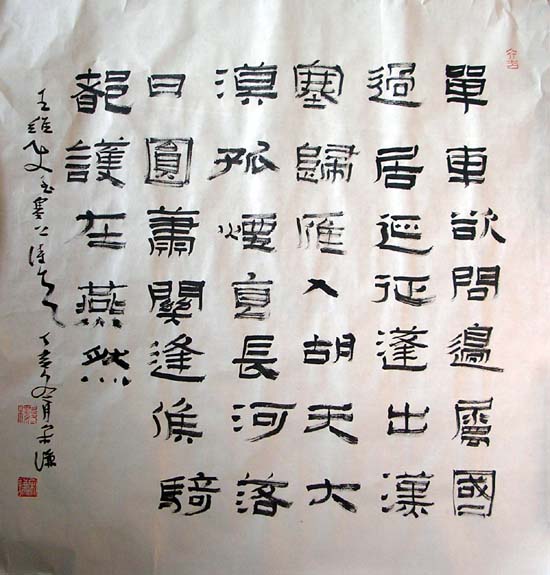 單車欲問邊屬國
過居延征蓬出漢
塞歸雁入胡天大
漠孤煙直長河落
日圓蕭關逢候騎
都護在燕然
王維使至塞上詩